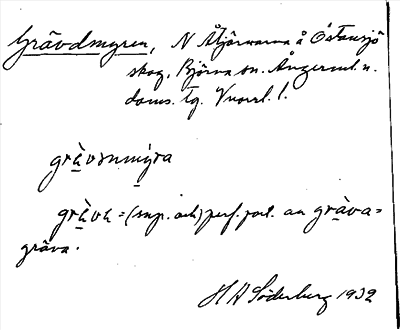 Grävdmyren, N Åtjärnarna å Östansjö
skog, Björna sn. Ångerml. n.
doms. Tg.
grävdmỳra
grävd = (sup. och) perf. part. av gräva =
gräva.
H A Söderberg 1932